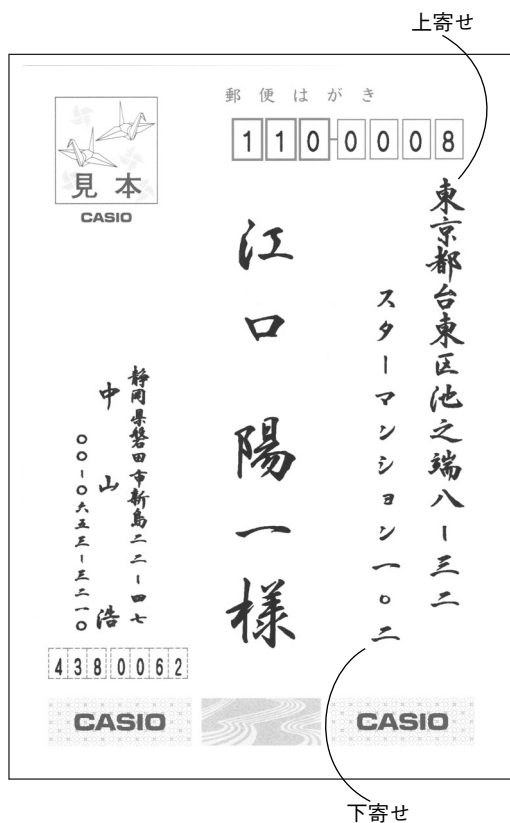 上寄せ
郵便はがき
見本
CASIO
110-0008
東京都台東区池之端八ー三二
スターマンション一〇二
江口陽一様
静岡県磐田市新島二二ー四七
中山浩
〇〇ー〇六五三ー三二一〇
4380062
CASIO
CASIO
下寄せ